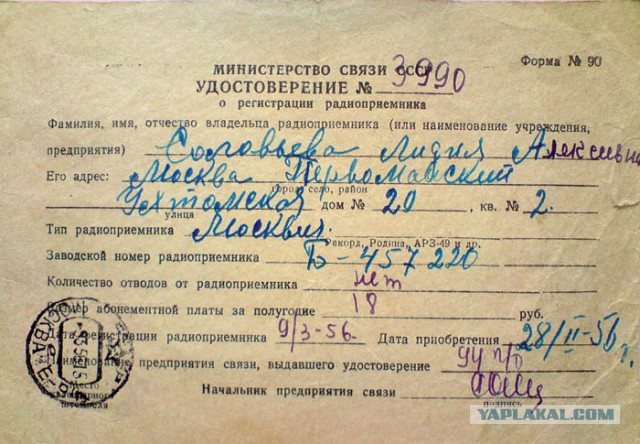 Форма № 90
МИНИСТЕРСТВО СВЯЗИ СССР
УДОСТОВЕРЕНИЕ № 3990
о регистрации радиоприемника
Фамилия, имя, отчество владельца радиоприемника (или наименование учреждения,
предприятия) Соловьева Лидия Алексеевна
Его адрес: Москва Первомайский
город, село, район
Ухтомская дом № 20, кв. № 2.
улица
Тип радиоприемника Москвич
Рекорд, Родина, АРЗ-49 и др.
Заводской номер радиоприемника Б-457220
Количество отводов от радиоприемника нет
Размер абонементной платы за полугодие 18 руб.
Дата регистрации радиоприемника 9/3-56. Дата приобретения 28/II-56 г.
Наименование предприятия связи, выдавшего удостоверение 94 п/о
Место
календарного
штемпеля
Начальник предприятия связи
подпись
МОСКВА
YAPLAKAL.COM